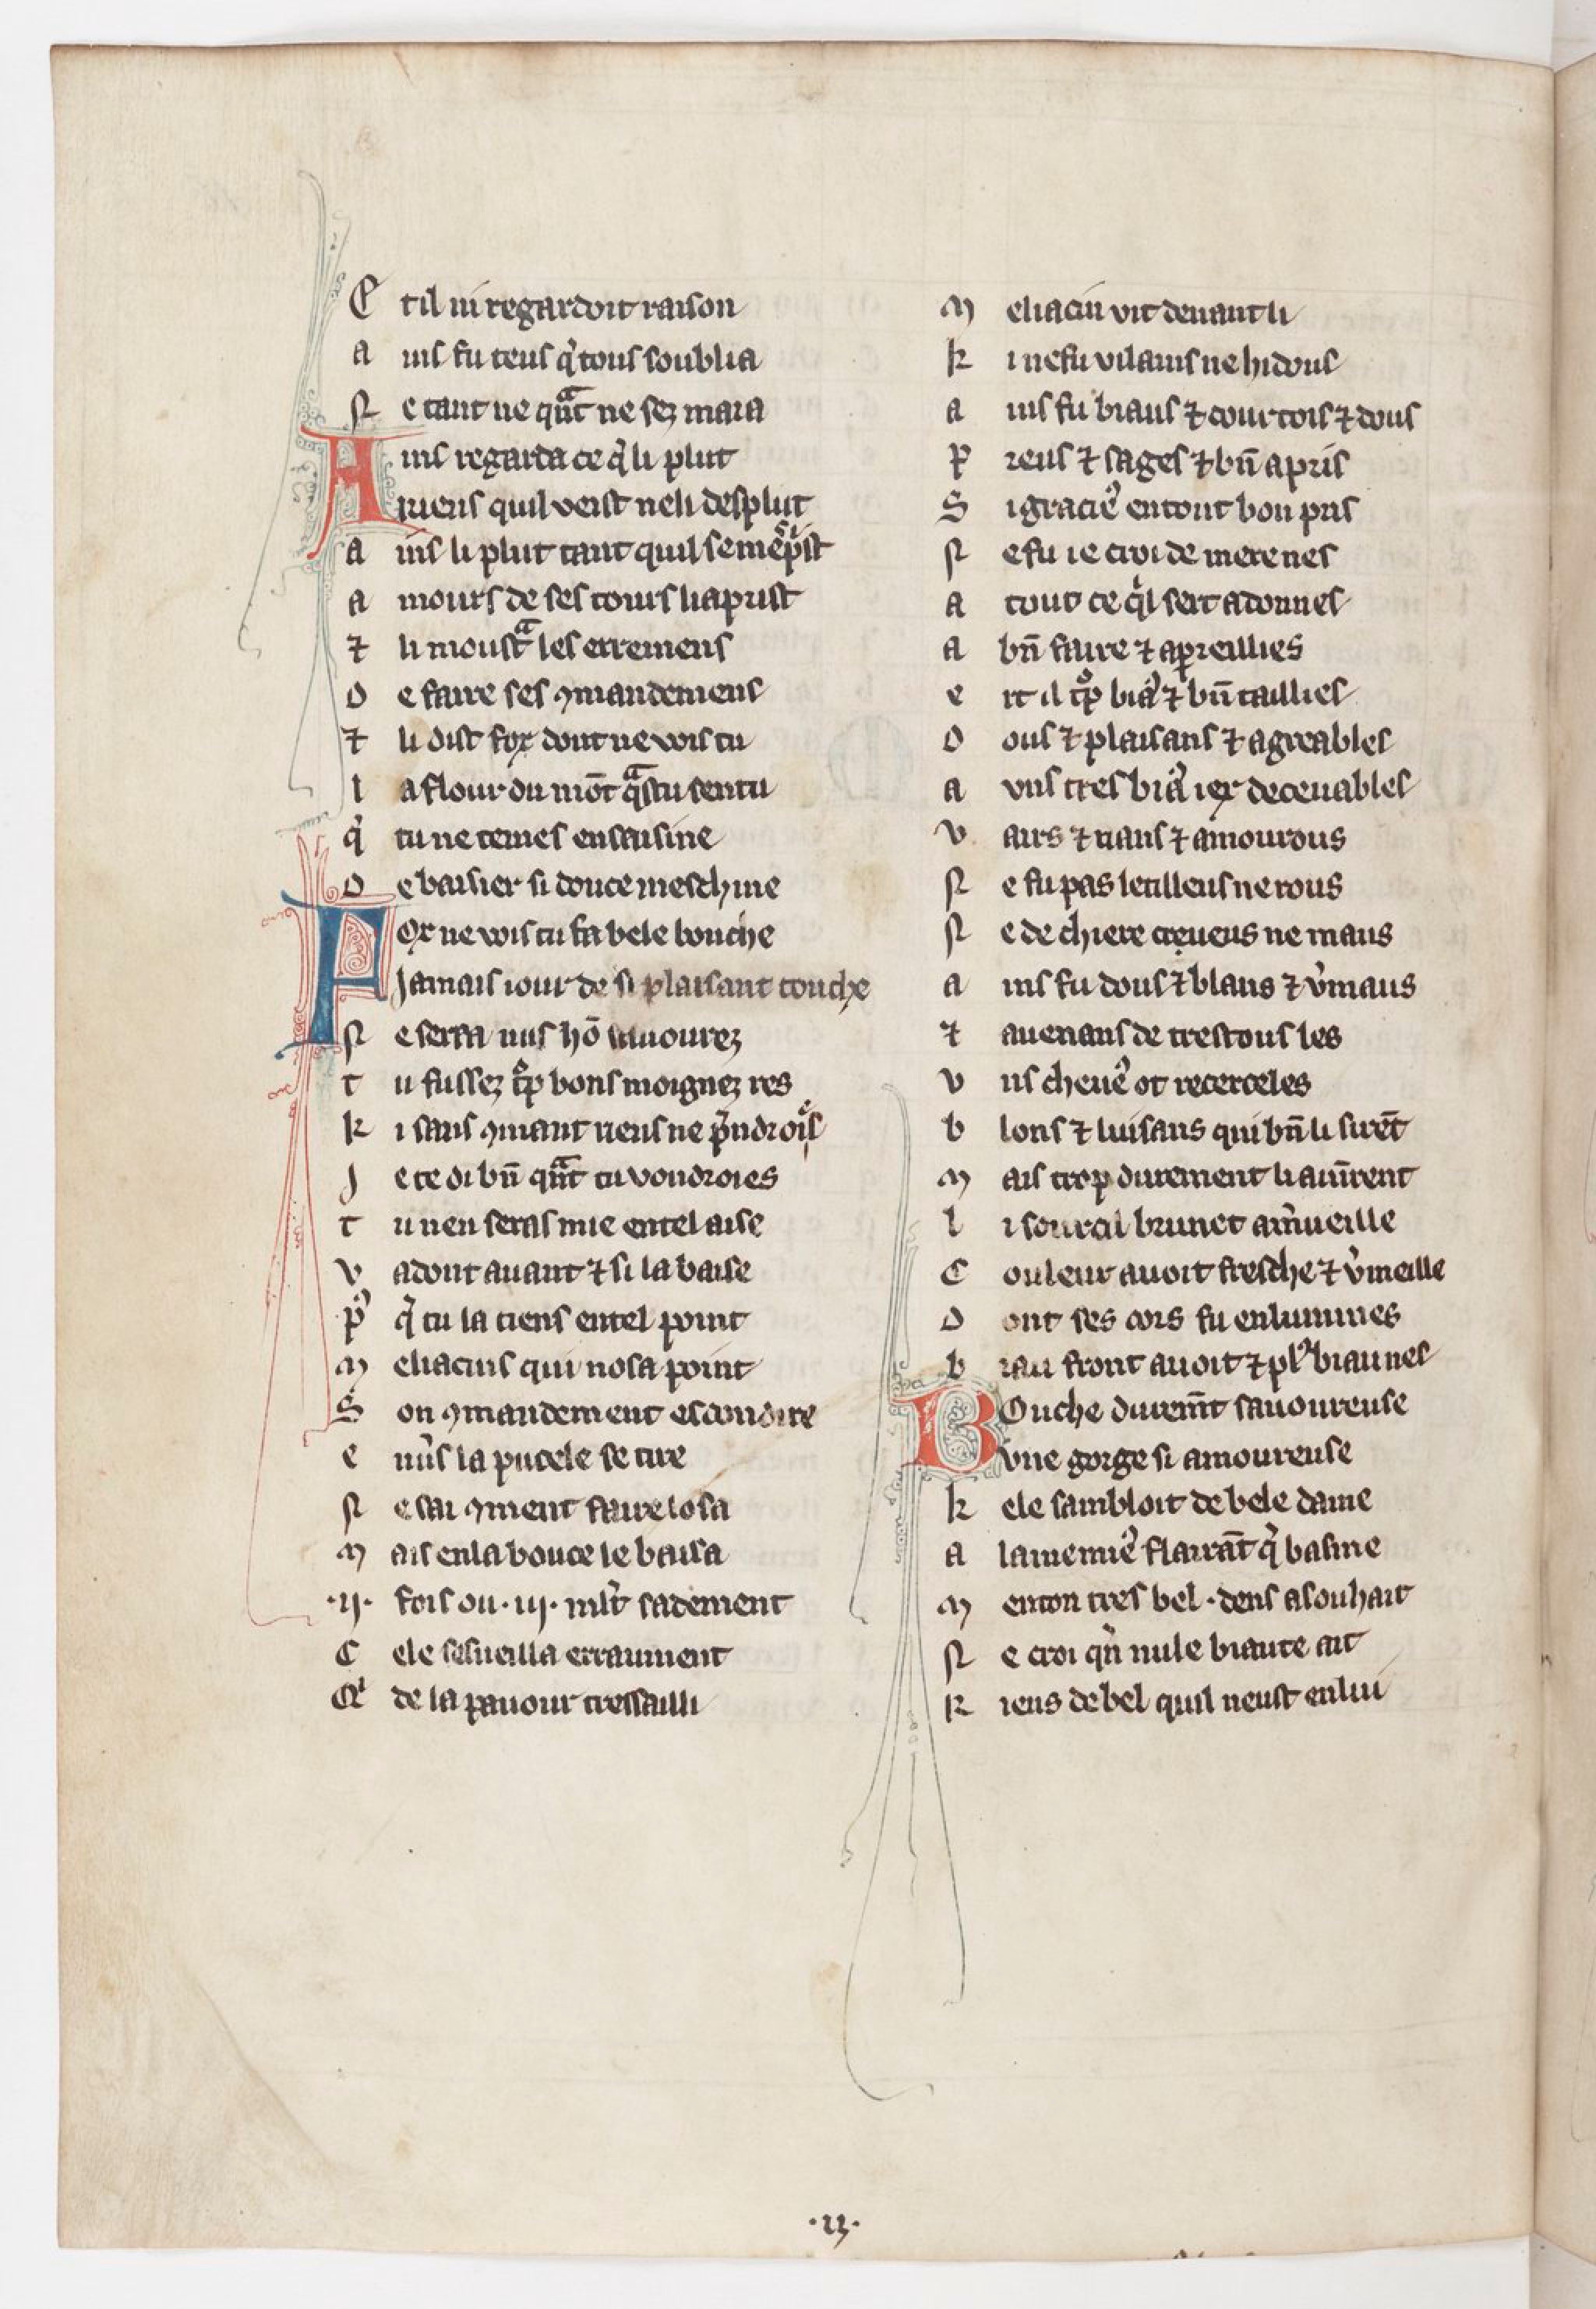 C til ni regardoit raison
a ins fu teus q̾ tous soublia
N e tant ne qua̅t ne sez mara
A ins regarda ce q̾ li plut
riens quil veist ne li desplut
a ins li plut tant quil
a mours de ses tours li aprist
⁊ li moustᵃ les erremens
D e faire ses ꝯmandemens
⁊ li dist for dont ne vois tu
l a flour du mo̅t qᵃs tu sentu
q̾ tu ne temes en saisine
D e baisier si douce meschine
P or ne vois tu sa bele bouche
Jamais iour de si plaisant touche
N e serra nus ho̅ sauourez
t u fusſez tᵒp bons moignez res
k i sans ꝯmant riens ne pͤndroiͤs
J e te di bn̅ qᵃnt tu voudroies
t u nen seras mie entel aise
v a dont auant ⁊ si la baise
p̾ q̾ tu la tiens entel point
m eliacins qui nosa point
S on ꝯmandement escondire
e nu̾s la pucele se tire
N e sai ꝯment faire losa
m ais en la bouce le baisa
.ij. fois ou .iij. mlt̾ sadement
C ele sesueilla erraument
Qⁱ de la paour tressailli
m eliacin vit deuant li
k i ne fu vilains ne hidous
a ins fu biaus ⁊ courtois ⁊ dous
P reus ⁊ sages ⁊ bn̅ apris
S i gracie᾽ en tout bon pris
N e fu ie croi de mere nes
a tout ce qⁱl sert adonnes
a bn̅ faire ⁊ apreillies
e rt il tᵒp bia᾽ ⁊ bn̅ taillies
D ous ⁊ plaisans ⁊ agreables
a vns tres bia᾽ iex deceuables
v airs ⁊ rians ⁊ amourous
N e fu pas letilleus ne rous
N e de chiere creueus ne maus
a ins fu dous ⁊ blans ⁊ v̾maus
⁊ auenans de trestous les
v ns cheue᾽ ot recerceles
b lons ⁊ luisans qui bn̅ li sire̅t
m ais trop durement li auin̅rent
l i sourcil brunet a m̾ueille
C ouleur auoit fresche ⁊ v̾meille
D ont ses cors fu enlumines
b iau front auoit ⁊ pl᾽ biau nes
B Ouche durem̅t sauoureuse
vne gorge si amoureuse
k ele sambloit de bele dame
a laine mie᾽ flaira̅t q̾ basme
m enton tres bel . dens a souhait
N e croi qn̾ nule biaute ait
R iens de bel quil neust en lui
.ij.